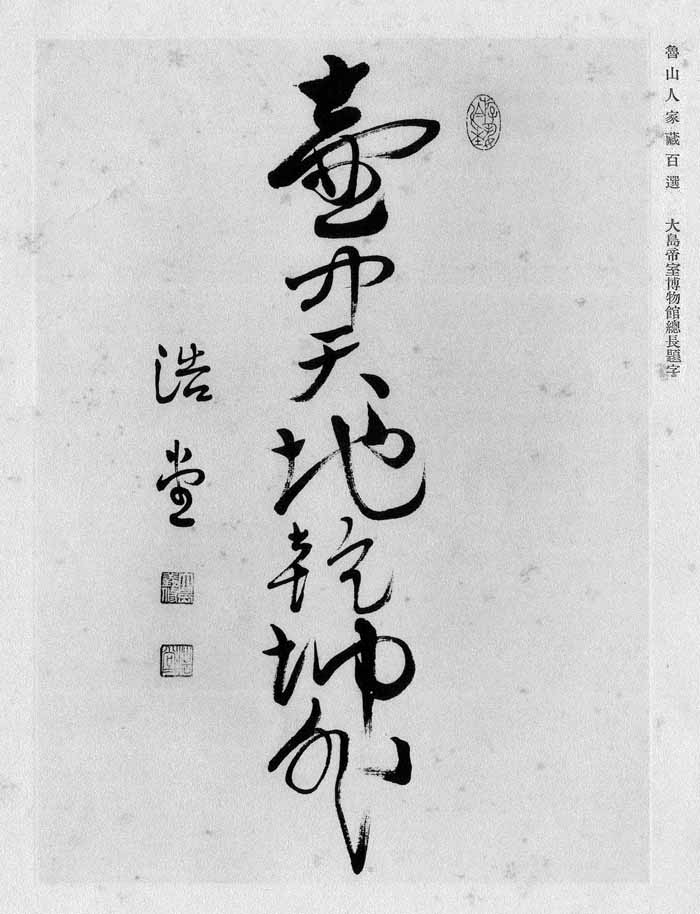 魯山人家藏百選　大島帝室博物館總長題字
壷中天地乾坤外
浩堂